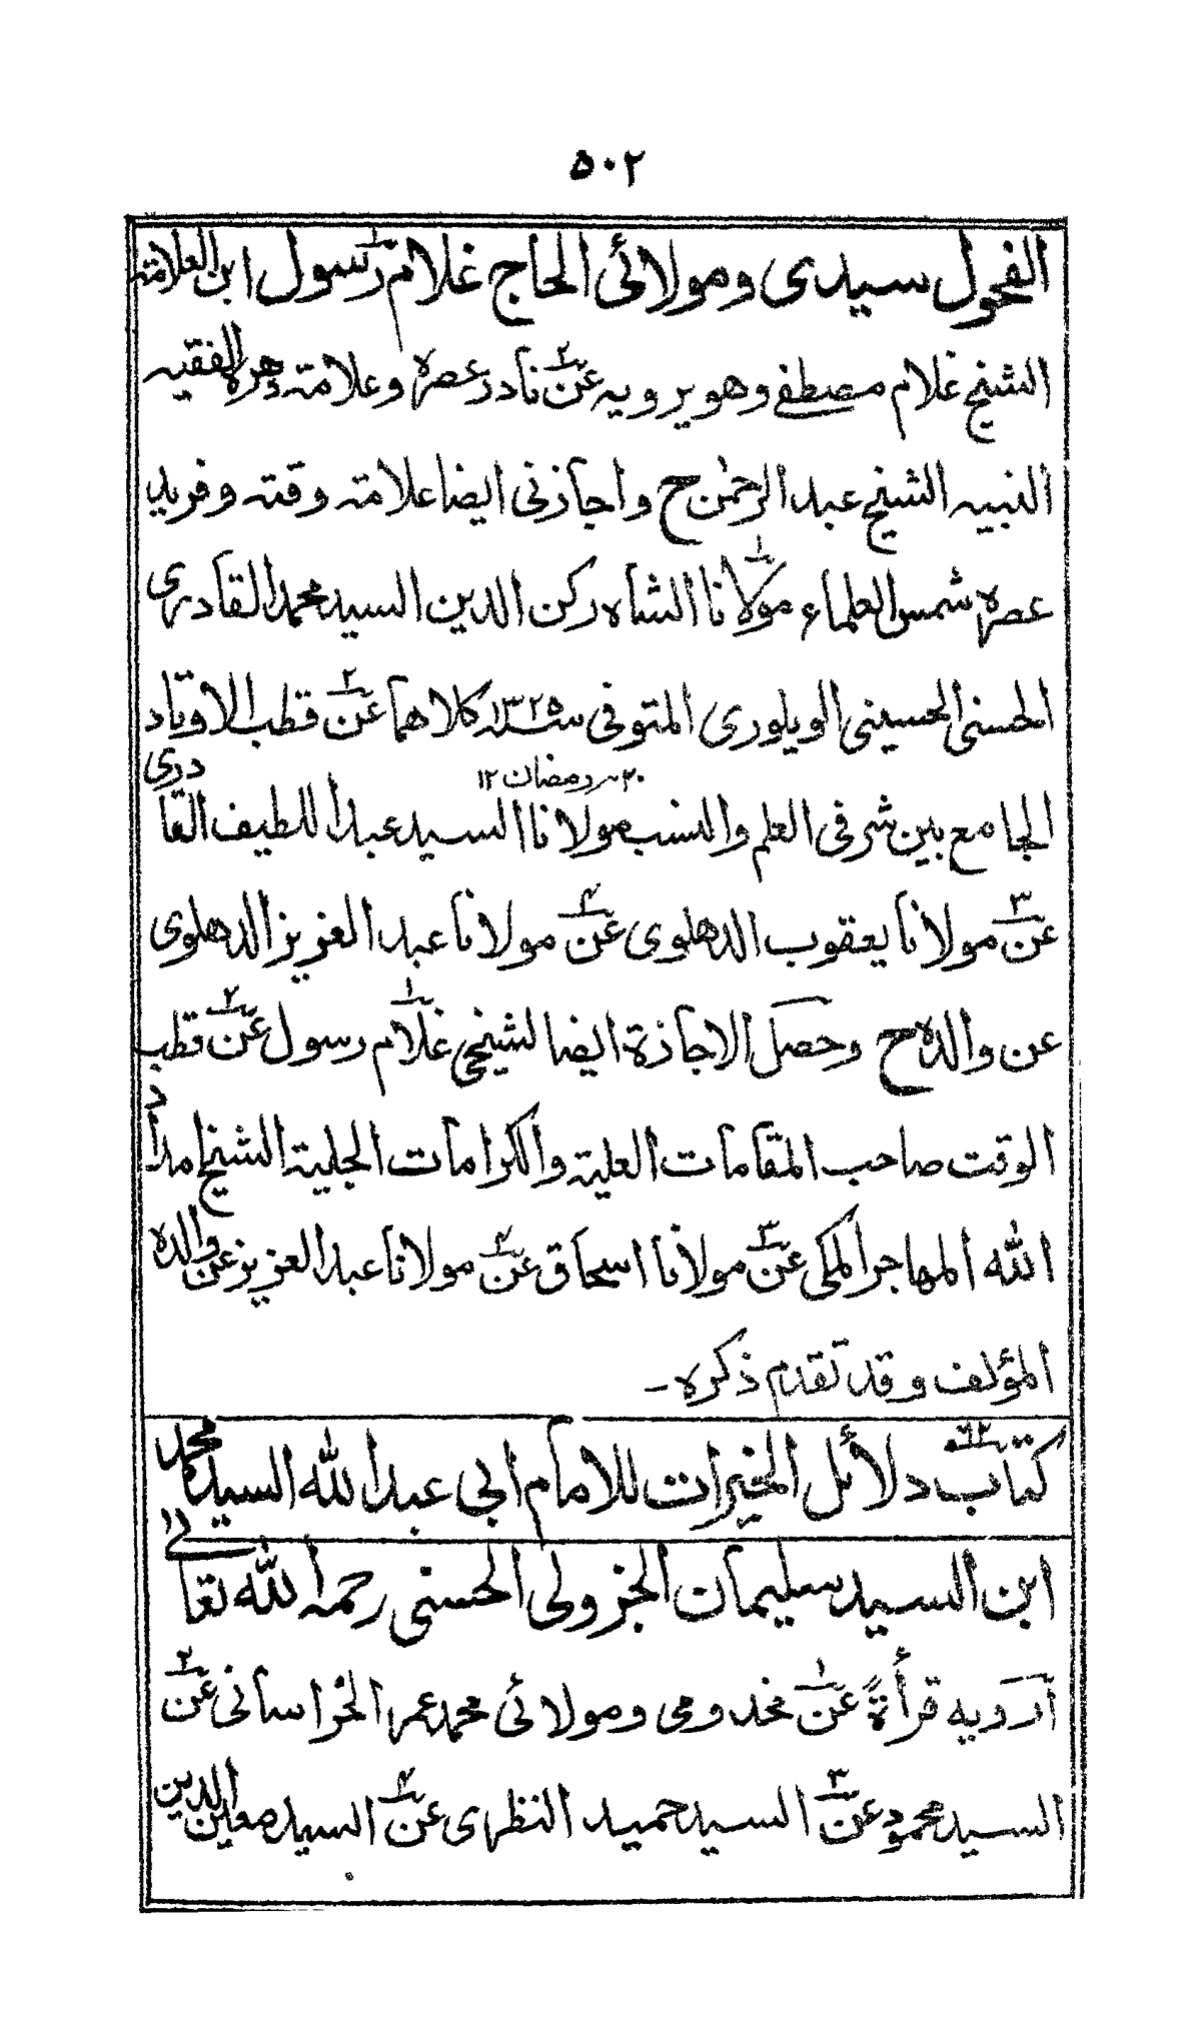 ٥٠٢
الفحول سيدى ومولائى الحاج غلام رسول ابن العلامة
الشيخ غلام مصطفے وهو يرويه عن نادر عصره وعلامة دهره الفقيه
النبيه الشيخ عبد الرحمٰن ح واجازنى ايضا علامة وقته وفريد
عصره شمس العلماء مولانا الشاه ركن الدين السيد محمد القادرى
الحسنى الحسينى الويلورى المتوفى سنة ١٣٢٥ كلاهما عن قطب الاوتاد
٢٠ رمضان ١٢
الجامع بين شرفى العلم والنسب مولانا السيد عبد اللطيف القادرى
عن مولانا يعقوب الدهلوى عن مولانا عبد العزيز الدهلوى
عن والده ح وحصل الاجازة ايضا لشيخى غلام رسول عن قطب
الوقت صاحب المقامات العلية والكرامات الجلية الشيخ امداد
الله المهاجر المكى عن مولانا اسحاق عن مولانا عبد العزيز عن والده
المؤلف وقد تقدم ذكره -
كتاب دلائل الخيرات للامام ابي عبد الله السيد محمد
ابن السيد سليمان الجزولى الحسنى رحمه الله تعالى
ارويه قرأةً عن مخدومى ومولائى محمد عمر الخراسانى عن
السيد محمود عن السيد حميد النظرى عن السيد معين الدين